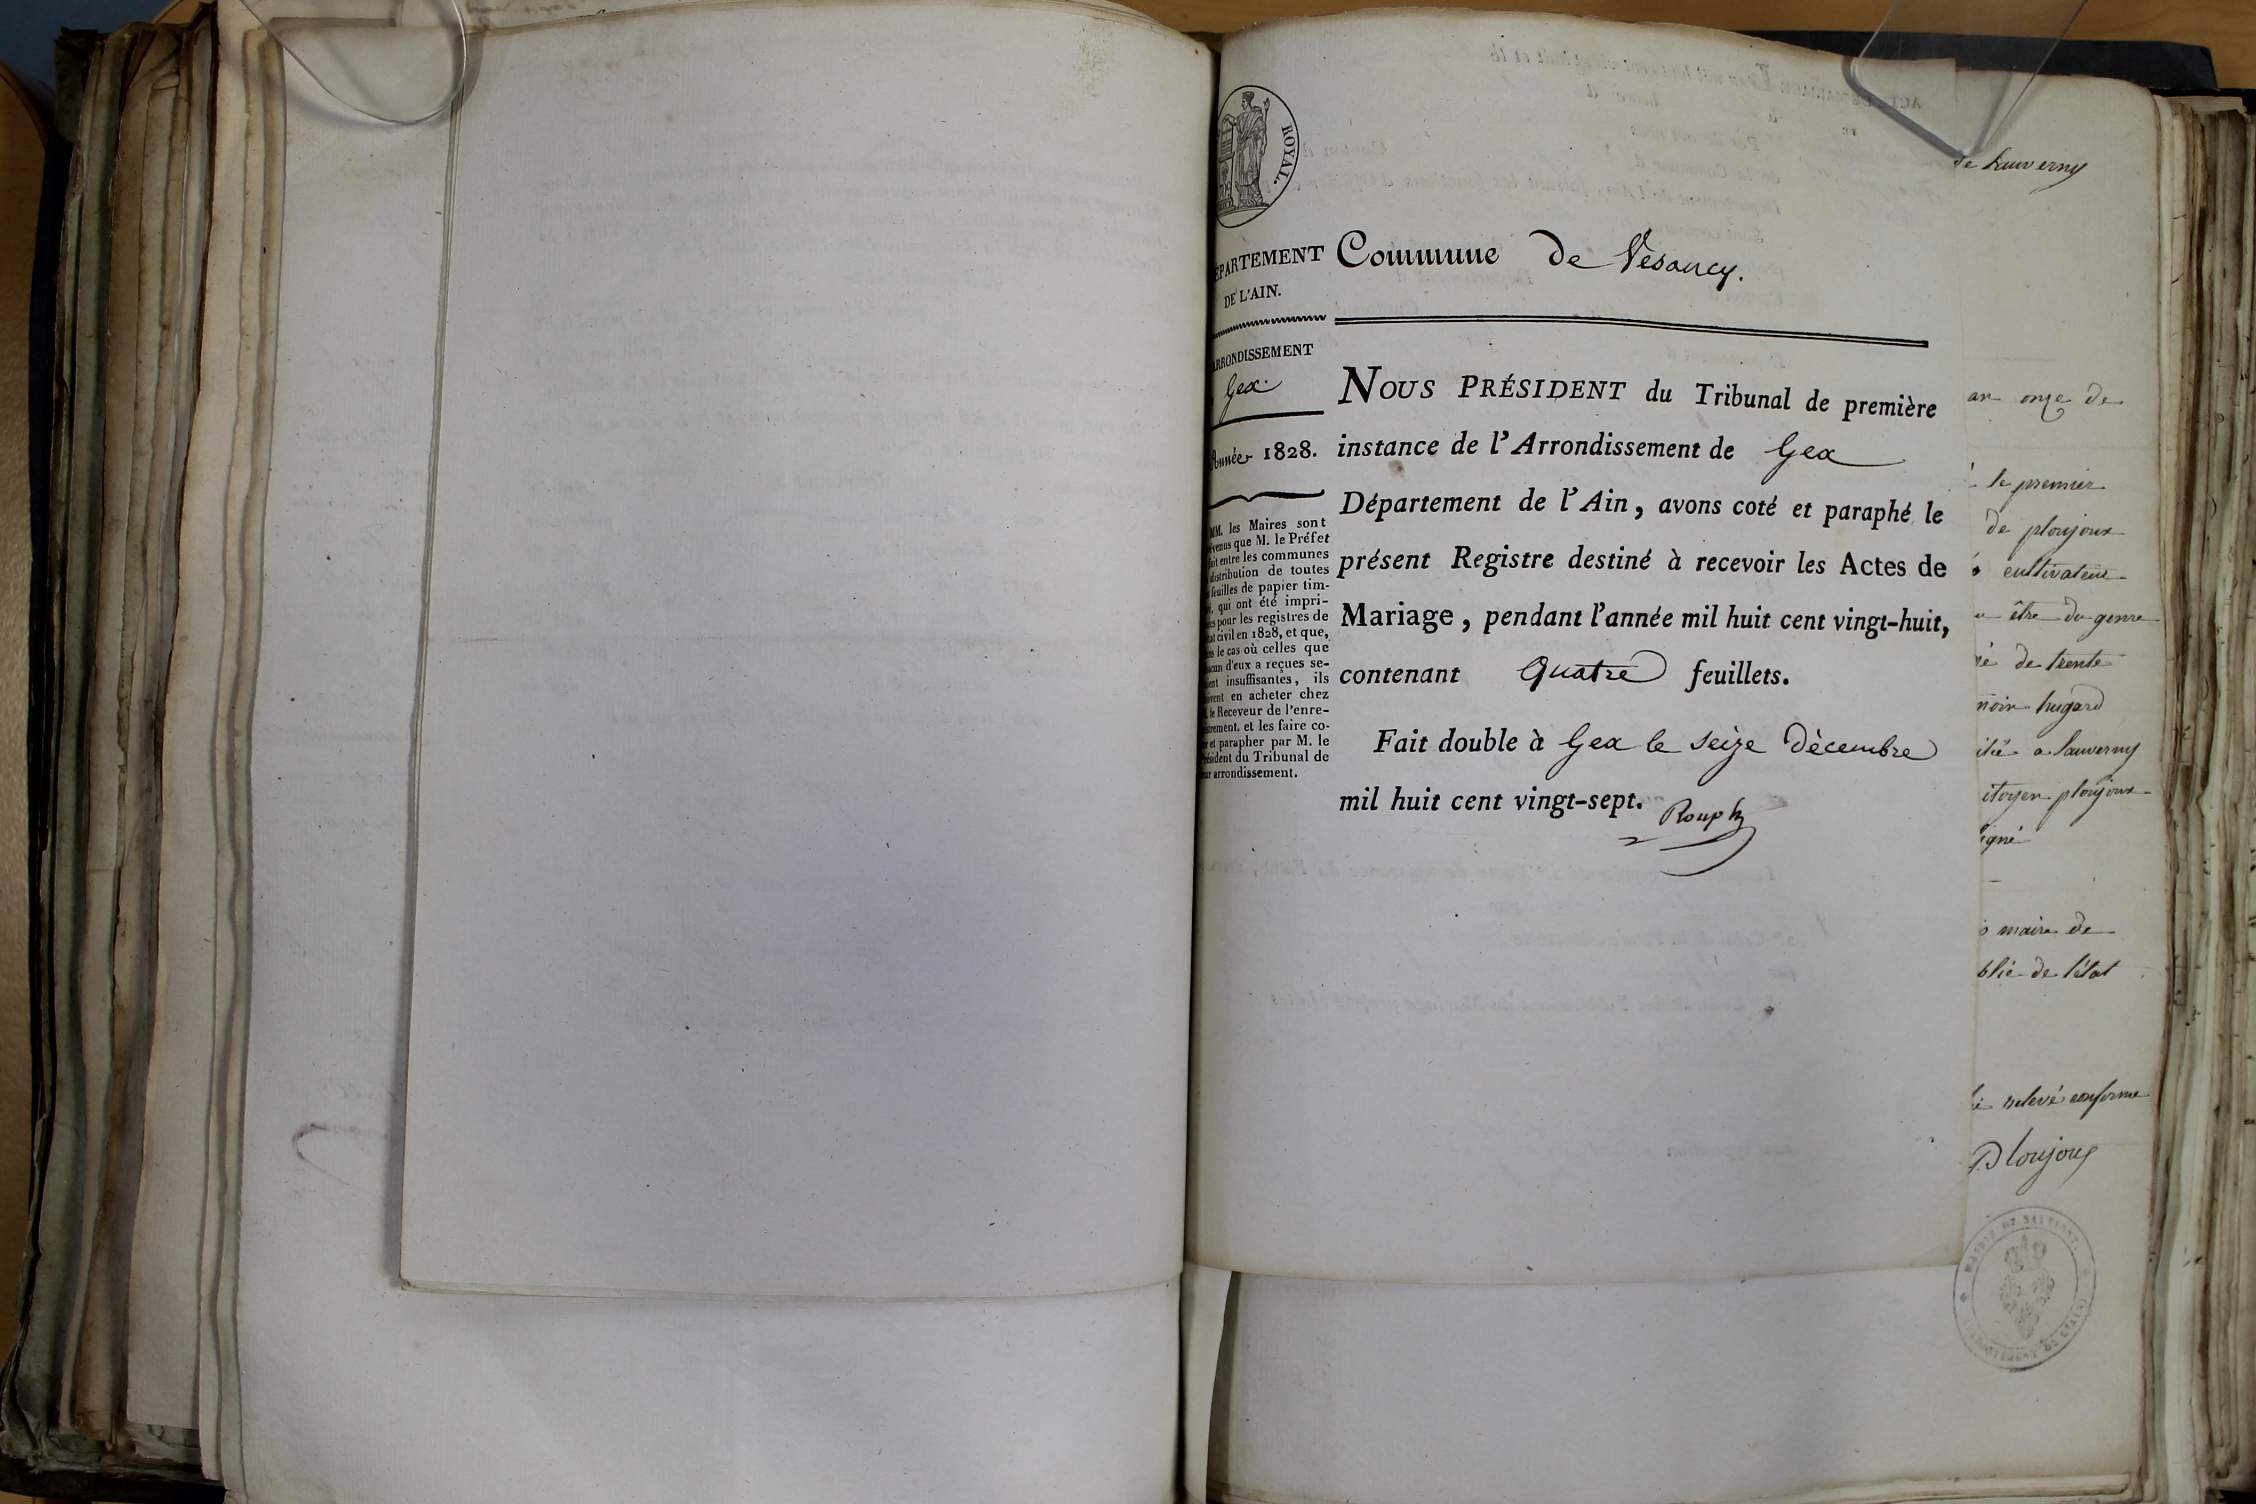 ROYAL.
DÉPARTEMENT
DE L'AIN.
ARRONDISSEMENT
Gex.
Année 1828.
MM. les Maires sont
prévenus que M. le Préfet
fait entre les communes
distribution de toutes
feuilles de papier tim-
qui ont été impri-
pour les registres de
civil en 1828, et que,
le cas où celles que
chacun d'eux a reçues se-
insuffisantes, ils
en acheter chez
le Receveur de l'enre-
gistrement, et les faire co-
et parapher par M. le
Président du Tribunal de
arrondissement.
Commune de Vesancy.
NOUS PRÉSIDENT du Tribunal de première
instance de l'Arrondissement de Gex
Département de l'Ain, avons coté et paraphé le
présent Registre destiné à recevoir les Actes de
Mariage, pendant l'année mil huit cent vingt-huit,
contenant Quatre feuillets.
Fait double à Gex le seize décembre
mil huit cent vingt-sept.
Rouph
de Sauverny
an onze de
le premier
de ploujoux
cultivateur
être du genre
de trente
hugard
a Sauverny
citoyen ploujoux
signé
maire de
de l'état
relevé conforme
Ploujoux